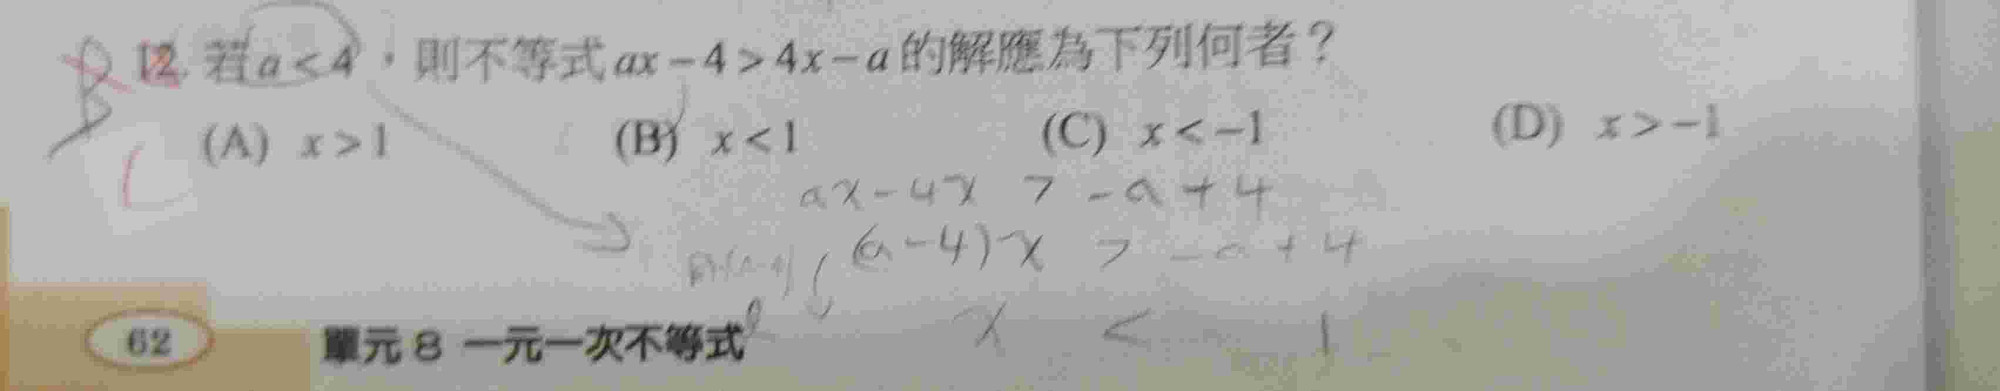 12. 若a<4，則不等式ax-4>4x-a的解應為下列何者？
(A) x>1 (B) x<1 (C) x<-1 (D) x>-1
C
ax-4x > -a+4
(a-4)x > -a+4
x < 1
62 單元8 一元一次不等式